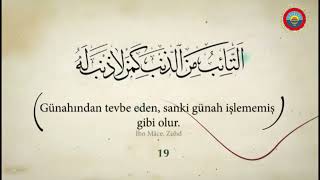 التَّائِبُ مِنَ الذَّنْبِ كَمَنْ لَا ذَنْبَ لَهُ
Günahından tevbe eden, sanki günah işlememiş
gibi olur.
İbn Mâce, Zühd
19